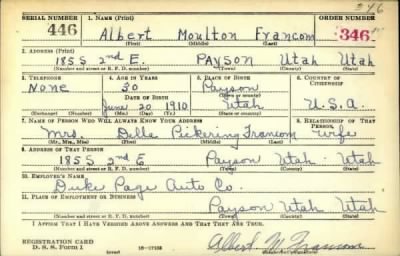 346
SERIAL NUMBER 1. NAME (Print) ORDER NUMBER
446 Albert Moulton Francom 346
(First) (Middle) (Last)
2. ADDRESS (Print)
185 S 2nd E. PAYSON Utah Utah
(Number and street or R. F. D. number) (Town) (County) (State)
3. TELEPHONE 4. AGE IN YEARS 5. PLACE OF BIRTH 6. COUNTRY OF CITIZENSHIP
None 30 Payson
(Town or county)
DATE OF BIRTH
June 20 1910 Utah U.S.A.
(Exchange) (Number) (Mo.) (Day) (Yr.) (State or country)
7. NAME OF PERSON WHO WILL ALWAYS KNOW YOUR ADDRESS 8. RELATIONSHIP OF THAT PERSON
Mrs. Della Pickering Francom wife
(Mr., Mrs., Miss) (First) (Middle) (Last)
9. ADDRESS OF THAT PERSON
185 S 2nd E Payson Utah Utah
(Number and street or R. F. D. number) (Town) (County) (State)
10. EMPLOYER'S NAME
Duke Page Auto Co.
11. PLACE OF EMPLOYMENT OR BUSINESS
Payson Utah Utah
(Number and street or R. F. D. number) (Town) (County) (State)
I AFFIRM THAT I HAVE VERIFIED ABOVE ANSWERS AND THAT THEY ARE TRUE.
REGISTRATION CARD
D. S. S. FORM 1 (over) Albert M. Francom
(Registrant's signature)